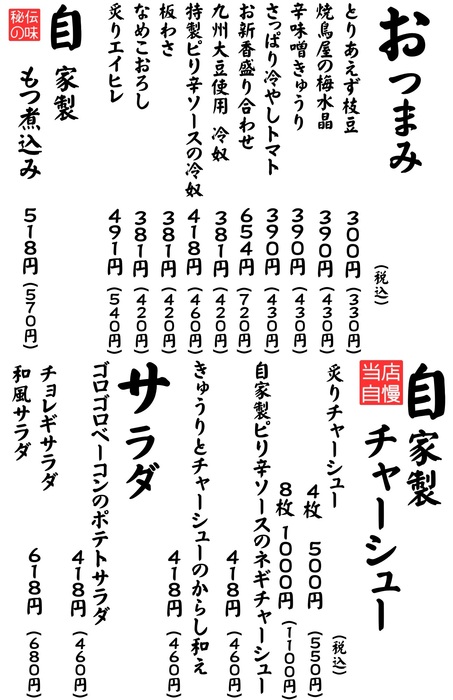 おつまみ
(税込)
とりあえず枝豆 300円(330円)
焼鳥屋の梅水晶 390円(430円)
辛味噌きゅうり 390円(430円)
さっぱり冷やしトマト 390円(430円)
お新香盛り合わせ 654円(720円)
九州大豆使用 冷奴 381円(420円)
特製ピリ辛ソースの冷奴 418円(460円)
板わさ 381円(420円)
なめこおろし 381円(420円)
炙りエイヒレ 491円(540円)
自家製
もつ煮込み
伝味
秘の
518円(570円)
自家製
チャーシュー
店慢
当自
(税込)
炙りチャーシュー
4枚 500円(550円)
8枚 1000円(1100円)
自家製ピリ辛ソースのネギチャーシュー
418円(460円)
きゅうりとチャーシューのからし和え
418円(460円)
サラダ
ゴロゴロベーコンのポテトサラダ
418円(460円)
チョレギサラダ
和風サラダ
618円(680円)